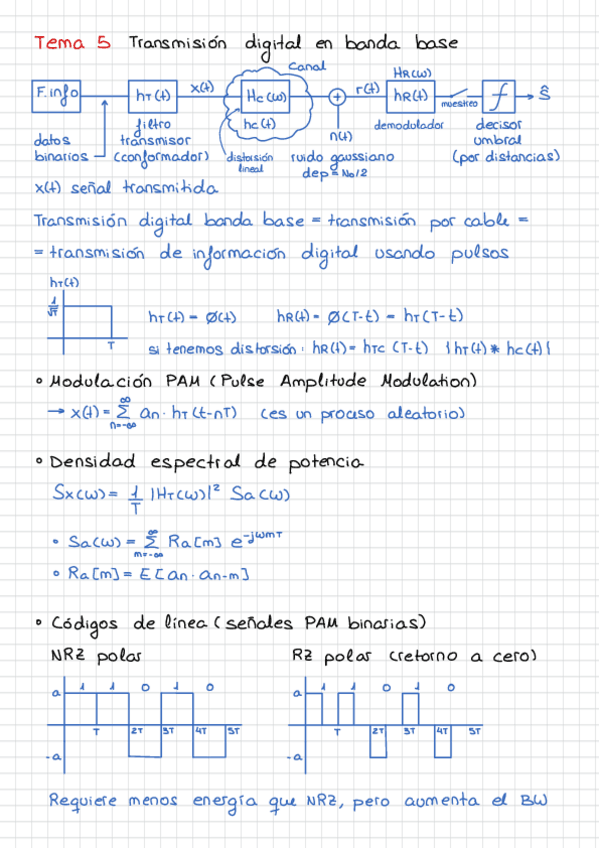 Tema 5 Transmisión digital en banda base
Canal
F. info hT(t) x(t) Hc(ω) r(t) HR(ω) hR(t) muestreo ∫ ŝ
hc(t) n(t)
datos binarios
filtro transmisor (conformador)
distorsión lineal
ruido gaussiano dep = No/2
demodulador
decisor umbral (por distancias)
x(t) señal transmitida
Transmisión digital banda base = transmisión por cable =
= transmisión de información digital usando pulsos
hT(t)
1/√T
T
hT(t) = Ø(t) hR(t) = Ø(T-t) = hT(T-t)
si tenemos distorsión: hR(t) = hTC (T-t) {hT(t) * hc(t)}
• Modulación PAM (Pulse Amplitude Modulation)
→ x(t) = ∞ Σ n=-∞ an · hT(t-nT) (es un proceso aleatorio)
• Densidad espectral de potencia
Sx(ω) = 1/T |HT(ω)|² Sa(ω)
• Sa(ω) = ∞ Σ m=-∞ Ra[m] e^-jωmT
• Ra[m] = E[an · an-m]
• Códigos de línea (señales PAM binarias)
NRZ polar RZ polar (retorno a cero)
1 1 0 1 0
a
T 2T 3T 4T 5T
-a
1 1 0 1 0
a
T 2T 3T 4T 5T
-a
Requiere menos energía que NRZ, pero aumenta el BW